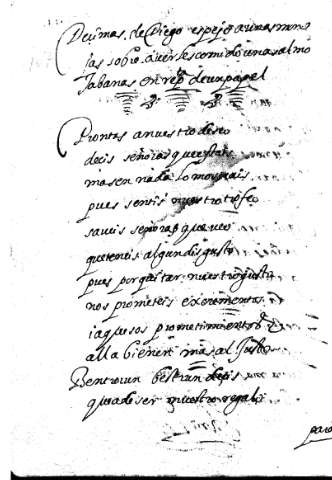 Decimas de Diego espejo a unas mon
jas sobre averse comido unas almo
jabanas en rep de un papel
Prontas a nuestro deseo
decis señoras que estais
mas en nada lo mostrais
pues sentis nuestro trofeo
saveis señoras que veo
que teneis algun disgusto
pues por quitar nuestro gusto
nos prometeis excrementos
i aquesos prometimientos
alla bienen mas al Justo
Dentro un
que a de ser nuestro regalo
para